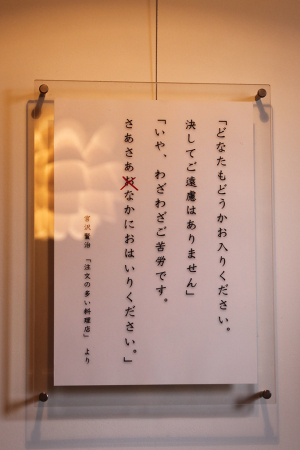 「どなたもどうかお入りください。
決してご遠慮はありません」
「いや、わざわざご苦労です。
さあさあおなかにおはいりください。」
宮沢賢治 「注文の多い料理店」 より